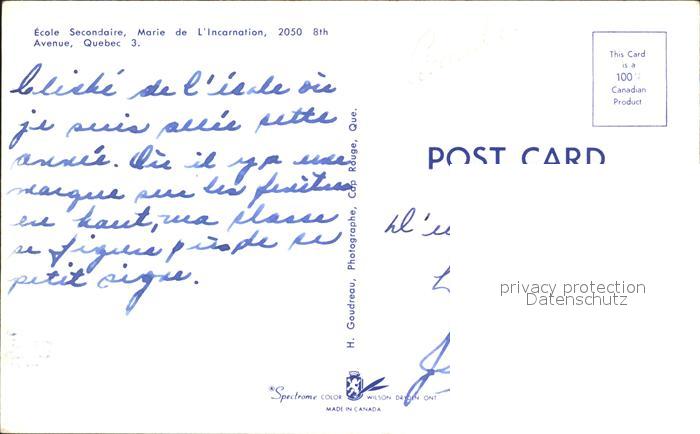 École Secondaire, Marie de L'Incarnation, 2050 8th
Avenue, Quebec 3.
Cliché de l'école où
je suis allée cette
année. Où il y a une
marque sur les fenêtres
en haut, ma classe
se figure près de ce
petit signe.
H. Goudreau, Photographe, Cap Rouge, Que.
This Card
is a
100%
Canadian
Product
POST CARD
privacy protection
Datenschutz
Spectrome COLOR WILSON DRYDEN ONT
MADE IN CANADA